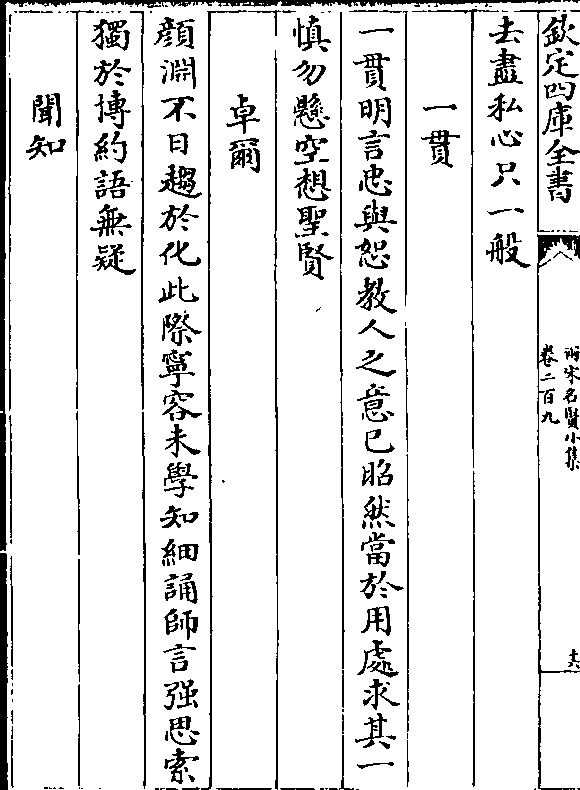 欽定四庫全書
兩宋名賢小集
卷二百九
十六
去盡私心只一般
一貫
一貫明言忠與恕教人之意已昭然當於用處求其一
慎勿懸空想聖賢
卓爾
顔淵不日趨於化此際寧容未學知細誦師言强思索
獨於摶約語無疑
聞知